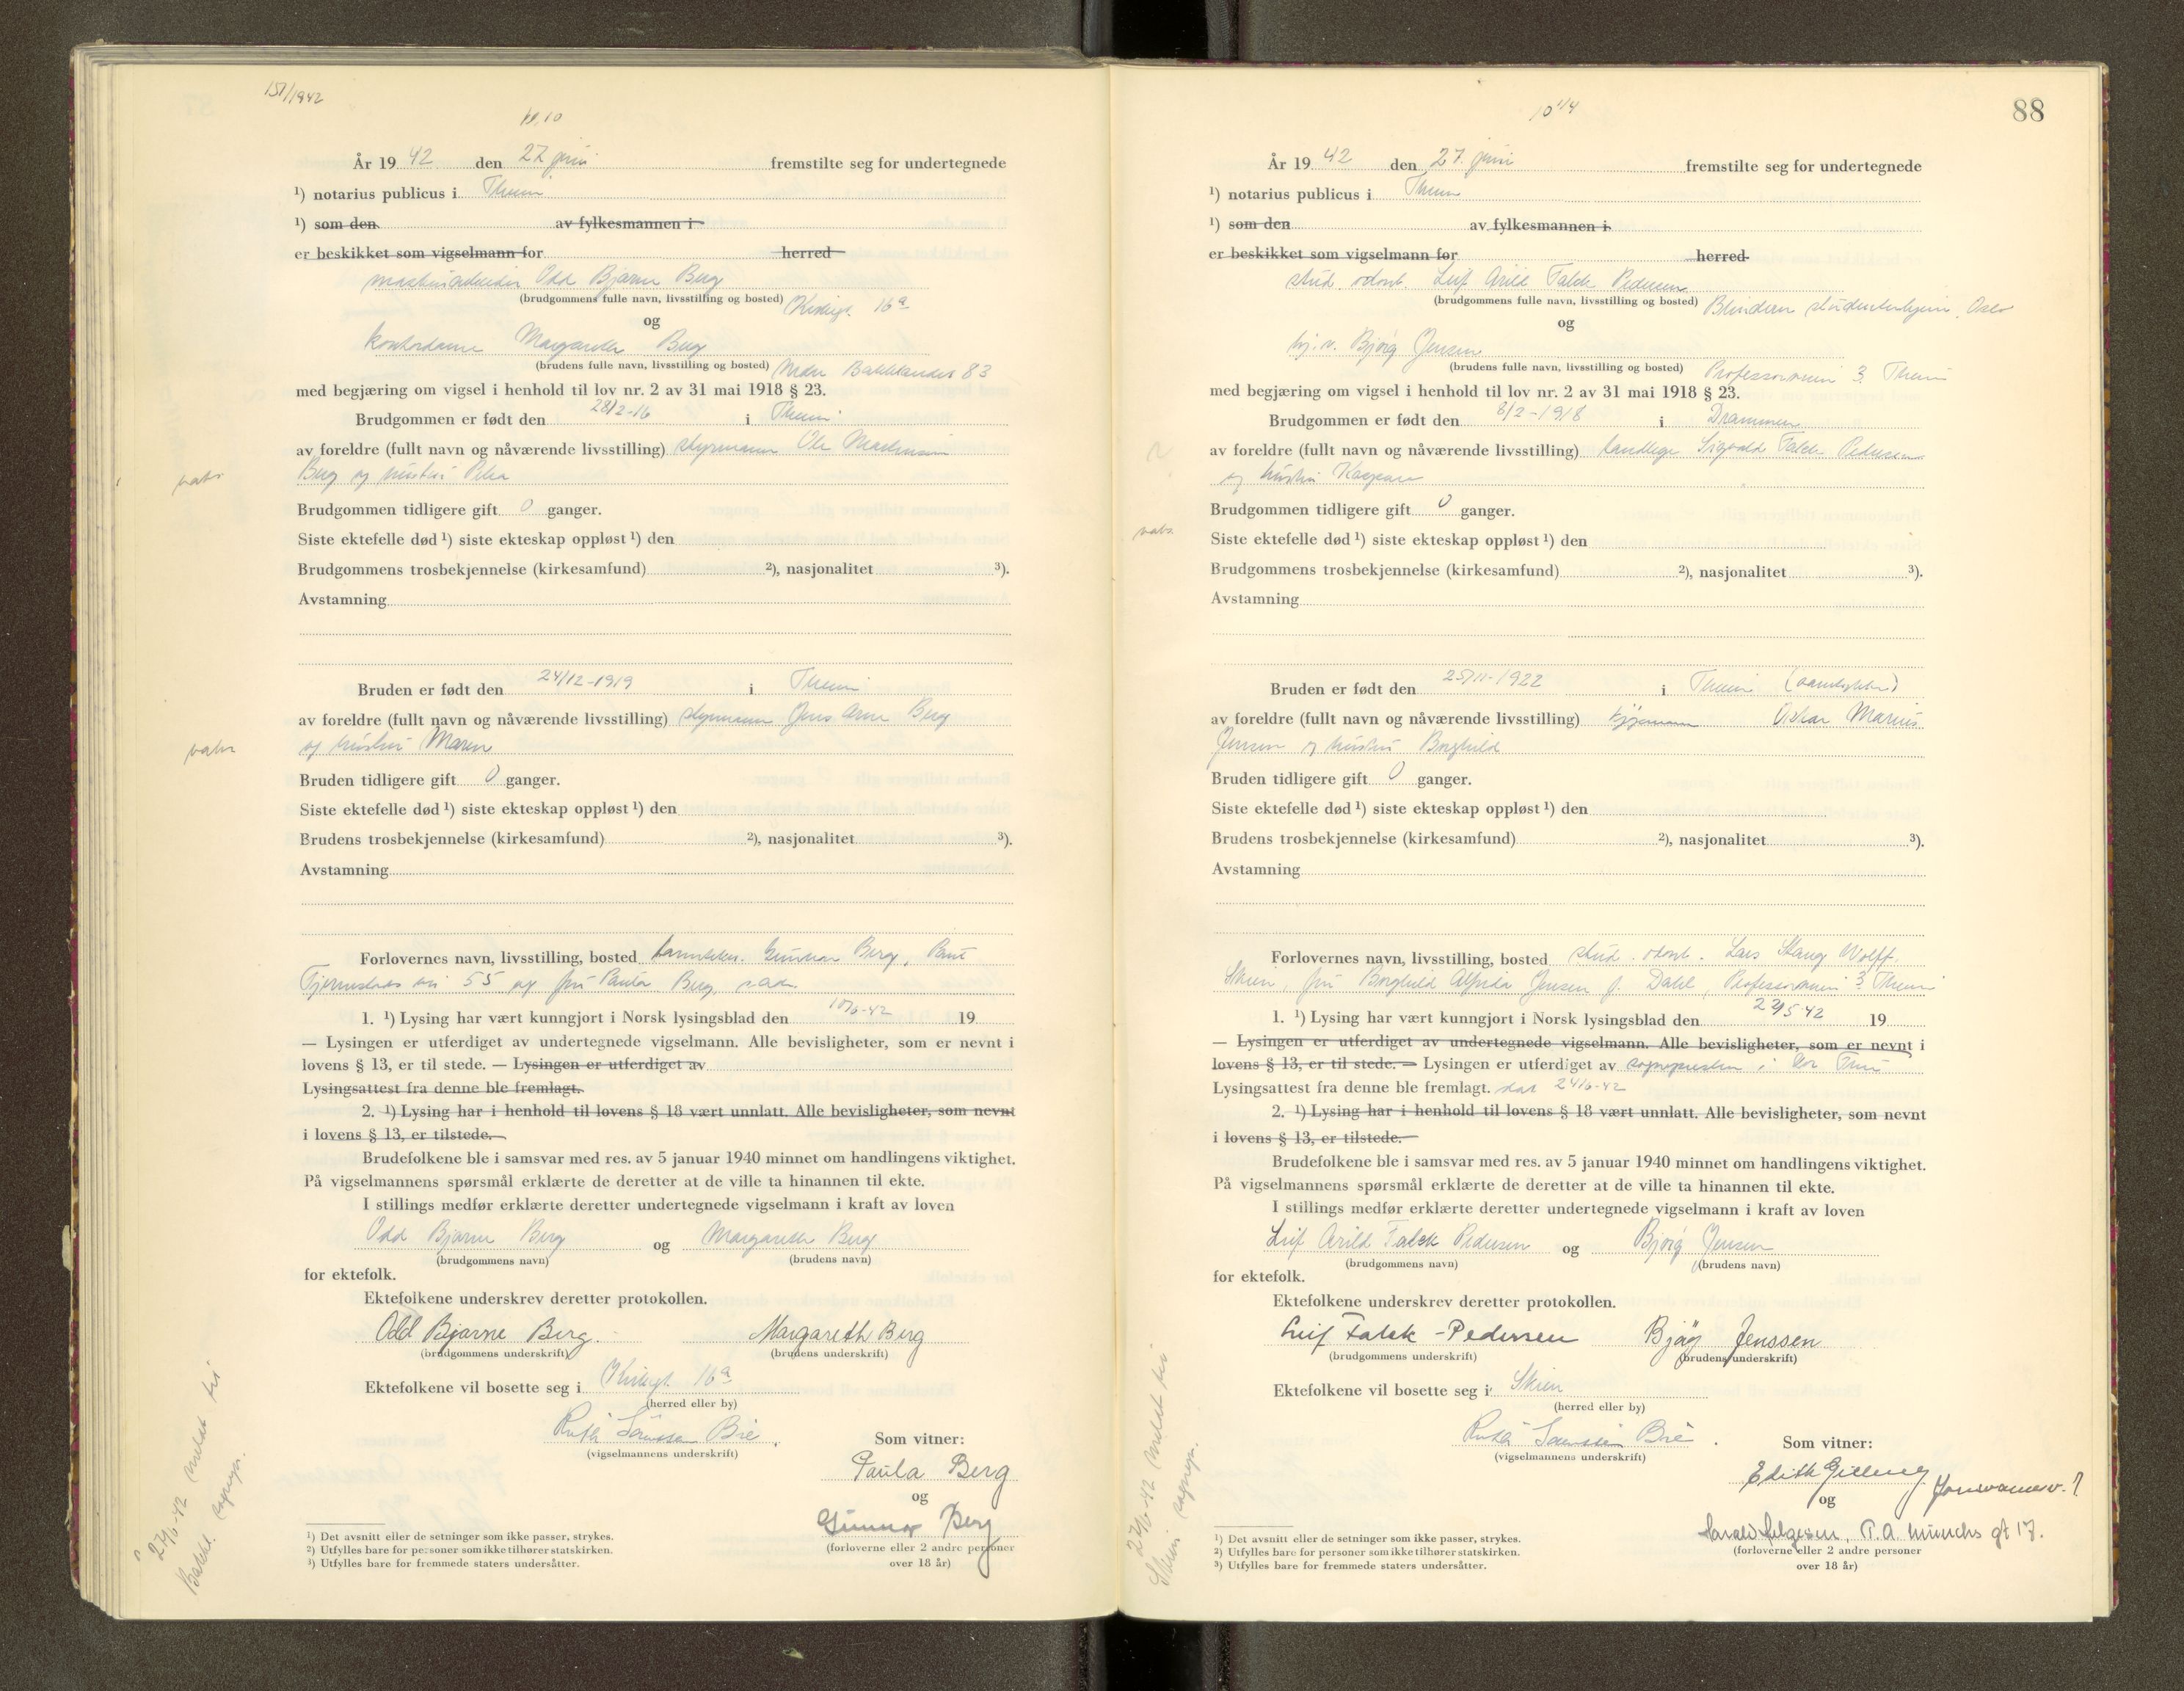 151/1942
10,10
År 19 42 den 27 juni fremstilte seg for undertegnede
¹) notarius publicus i Thum
¹) som den av fylkesmannen i
er beskikket som vigselmann for herred
maskinarbeider Odd Bjarne Berg
(brudgommens fulle navn, livsstilling og bosted) Kirkegt. 16a
og
kontordame Margareth Berg
(brudens fulle navn, livsstilling og bosted) Nedre Bakklandet 83
med begjæring om vigsel i henhold til lov nr. 2 av 31 mai 1918 § 23.
Brudgommen er født den 28/2-16 i Theim
av foreldre (fullt navn og nåværende livsstilling) styrmann Ole
Berg og hustru Petra
vaks
Brudgommen tidligere gift 0 ganger.
Siste ektefelle død ¹) siste ekteskap oppløst ¹) den
Brudgommens trosbekjennelse (kirkesamfund) ²), nasjonalitet ³).
Avstamning
Bruden er født den 24/12-1919 i Theim
av foreldre (fullt navn og nåværende livsstilling) styrmann Jens Arne Berg
og hustru Maren
vaks
Bruden tidligere gift 0 ganger.
Siste ektefelle død ¹) siste ekteskap oppløst ¹) den
Brudens trosbekjennelse (kirkesamfund) ²), nasjonalitet ³).
Avstamning
Forlovernes navn, livsstilling, bosted Gunnar Berg,
55 og fru Paula Berg, s.adr.
1. ¹) Lysing har vært kunngjort i Norsk lysingsblad den 10/6-42 19
— Lysingen er utferdiget av undertegnede vigselmann. Alle bevisligheter, som er nevnt i
lovens § 13, er til stede. — Lysingen er utferdiget av
Lysingsattest fra denne ble fremlagt.
2. ¹) Lysing har i henhold til lovens § 18 vært unnlatt. Alle bevisligheter, som nevnt
i lovens § 13, er tilstede.
Brudefolkene ble i samsvar med res. av 5 januar 1940 minnet om handlingens viktighet.
På vigselmannens spørsmål erklærte de deretter at de ville ta hinannen til ekte.
I stillings medfør erklærte deretter undertegnede vigselmann i kraft av loven
Odd Bjarne Berg og Margareth Berg
(brudgommens navn) (brudens navn)
for ektefolk.
Ektefolkene underskrev deretter protokollen.
Odd Bjarne Berg. Margareth Berg
(brudgommens underskrift) (brudens underskrift)
Ektefolkene vil bosette seg i Kirkegt 16a
(herred eller by)
Ruth Sørnssen Bie.
(vigselmannens underskrift)
Som vitner:
Paula Berg
og
Gunnar Berg
(forloverne eller 2 andre personer
over 18 år)
¹) Det avsnitt eller de setninger som ikke passer, strykes.
²) Utfylles bare for personer som ikke tilhører statskirken.
³) Utfylles bare for fremmede staters undersåtter.
27/6-42 meldt til
Bakkl. sogнepr.
88
10 1/4
År 19 42 den 27. juni fremstilte seg for undertegnede
¹) notarius publicus i Thum
¹) som den av fylkesmannen i
er beskikket som vigselmann for herred
stud. odont. Leif Arild Falck Pedersen
(brudgommens fulle navn, livsstilling og bosted) Blindern studenterhjem, Oslo
og
hj.v. Bjørg Jensen
(brudens fulle navn, livsstilling og bosted) Professor 3 Theim
med begjæring om vigsel i henhold til lov nr. 2 av 31 mai 1918 § 23.
Brudgommen er født den 8/2-1918 i Drammen
av foreldre (fullt navn og nåværende livsstilling) tandlege Sigvald Falck Pedersen
og hustru Kaspara
Brudgommen tidligere gift 0 ganger.
vaks.
Siste ektefelle død ¹) siste ekteskap oppløst ¹) den
Brudgommens trosbekjennelse (kirkesamfund) ²), nasjonalitet ³).
Avstamning
Bruden er født den 25/11-1922 i Theim (samtykke)
av foreldre (fullt navn og nåværende livsstilling) kjøpmann Oskar Marius
Jensen og hustru Borghild
Bruden tidligere gift 0 ganger.
Siste ektefelle død ¹) siste ekteskap oppløst ¹) den
Brudens trosbekjennelse (kirkesamfund) ²), nasjonalitet ³).
Avstamning
Forlovernes navn, livsstilling, bosted stud. odont. Lars Stang Wolff.
Skien, fru Borghild Alfida Jensen f. Dahl, Professor 3 Theim
1. ¹) Lysing har vært kunngjort i Norsk lysingsblad den 22/5-42 19
— Lysingen er utferdiget av undertegnede vigselmann. Alle bevisligheter, som er nevnt i
lovens § 13, er til stede. — Lysingen er utferdiget av sognepresten i Vor Frue
Lysingsattest fra denne ble fremlagt. dat 24/6-42
2. ¹) Lysing har i henhold til lovens § 18 vært unnlatt. Alle bevisligheter, som nevnt
i lovens § 13, er tilstede.
Brudefolkene ble i samsvar med res. av 5 januar 1940 minnet om handlingens viktighet.
På vigselmannens spørsmål erklærte de deretter at de ville ta hinannen til ekte.
I stillings medfør erklærte deretter undertegnede vigselmann i kraft av loven
Leif Arild Falck Pedersen og Bjørg Jensen
(brudgommens navn) (brudens navn)
for ektefolk.
Ektefolkene underskrev deretter protokollen.
Leif Falck-Pedersen Bjørg Jenssen
(brudgommens underskrift) (brudens underskrift)
Ektefolkene vil bosette seg i Skien
(herred eller by)
Ruth Sørnssen Bie.
(vigselmannens underskrift)
Som vitner:
Edith Gilberg Jonsvannsv. 7
og
Harald Helgesen, P.A. Munchs gt 17.
(forloverne eller 2 andre personer
over 18 år)
¹) Det avsnitt eller de setninger som ikke passer, strykes.
²) Utfylles bare for personer som ikke tilhører statskirken.
³) Utfylles bare for fremmede staters undersåtter.
27/6-42 meldt til
Skien sognepr.